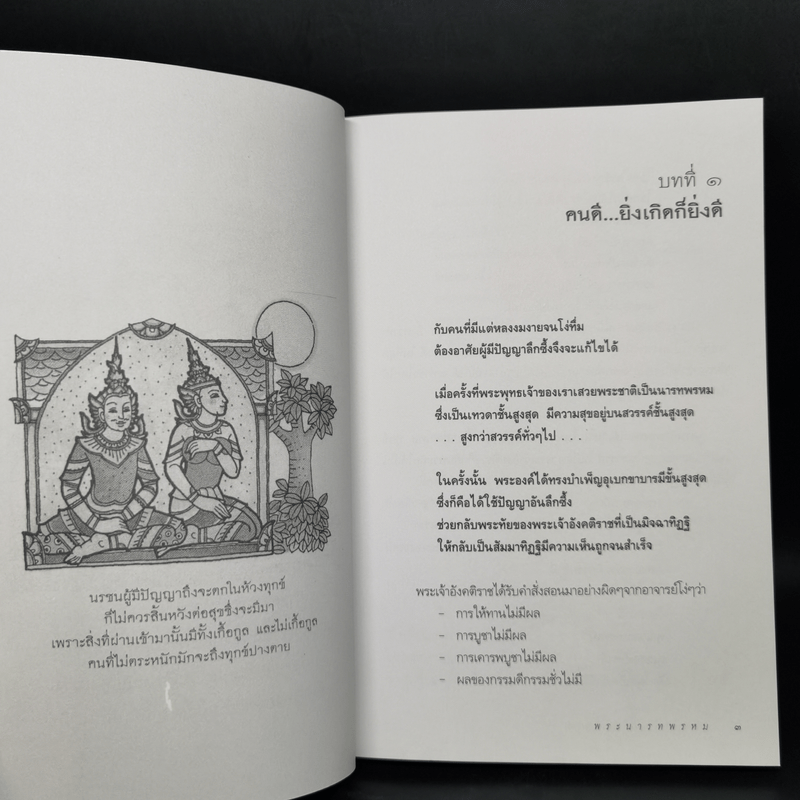 นรชนผู้มีปัญญาถึงจะตกในห้วงทุกข์
ก็ไม่ควรสิ้นหวังต่อสุขซึ่งจะมีมา
เพราะสิ่งที่ผ่านเข้ามานั้นมีทั้งเกื้อกูล และไม่เกื้อกูล
คนที่ไม่ตระหนักมักจะถึงทุกข์ปางตาย
บทที่ ๑
คนดี...ยิ่งเกิดก็ยิ่งดี
กับคนที่มีแต่หลงงมงายจนโง่ทึ่ม
ต้องอาศัยผู้มีปัญญาลึกซึ้งจึงจะแก้ไขได้
เมื่อครั้งที่พระพุทธเจ้าของเราเสวยพระชาติเป็นนารทพรหม
ซึ่งเป็นเทวดาชั้นสูงสุด มีความสุขอยู่บนสวรรค์ชั้นสูงสุด
. . . สูงกว่าสวรรค์ทั่วๆไป . . .
ในครั้งนั้น พระองค์ได้ทรงบำเพ็ญอุเบกขาบารมีขั้นสูงสุด
ซึ่งก็คือได้ใช้ปัญญาอันลึกซึ้ง
ช่วยกลับพระทัยของพระเจ้าอังคติราชที่เป็นมิจฉาทิฏฐิ
ให้กลับเป็นสัมมาทิฏฐิมีความเห็นถูกจนสำเร็จ
พระเจ้าอังคติราชได้รับคำสั่งสอนมาอย่างผิดๆจากอาจารย์โง่ๆว่า
- การให้ทานไม่มีผล
- การบูชาไม่มีผล
- การเคารพบูชาไม่มีผล
- ผลของกรรมดีกรรมชั่วไม่มี
พระนารทพรหม ๓